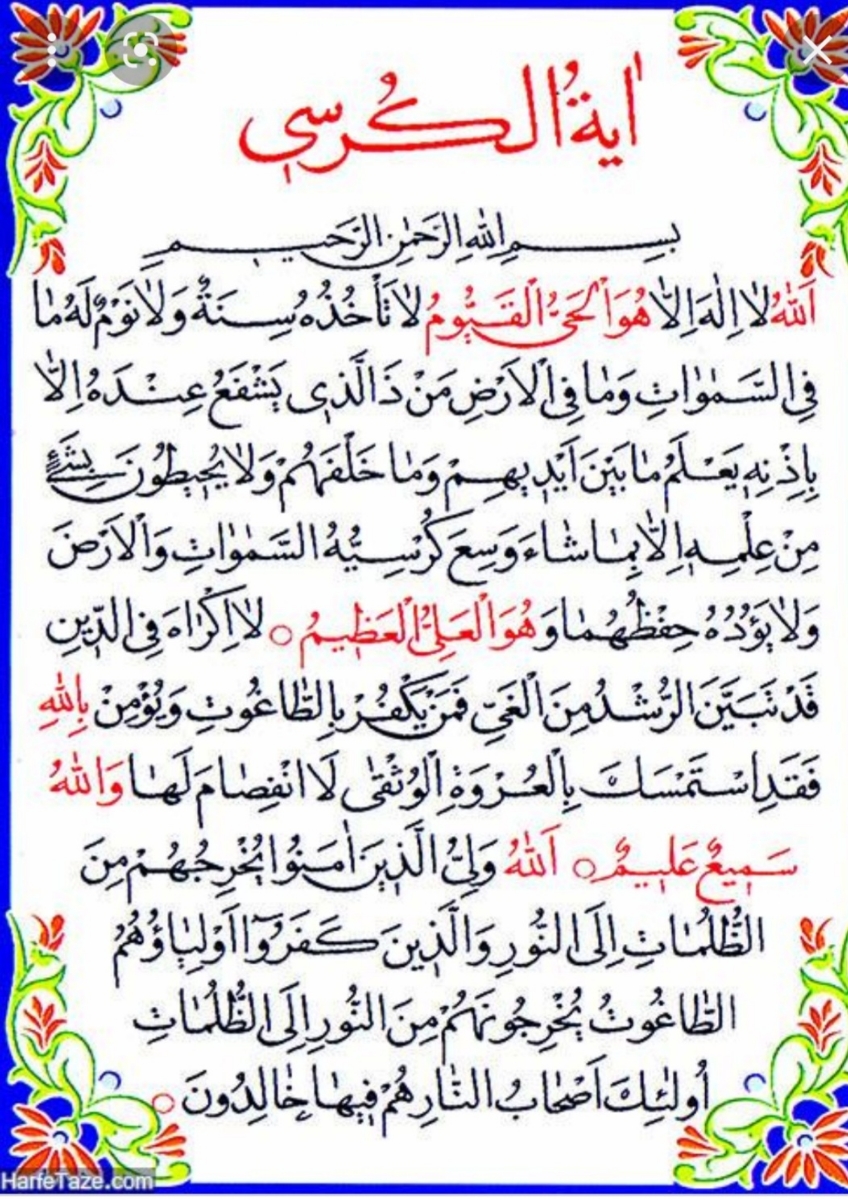 اٰیةُ الکُرسي
بِسْمِ اللهِ الرَّحْمٰنِ الرَّحيمِ
اَللهُ لا اِلٰهَ اِلّا هُوَ الْحَيُّ الْقَيُّومُ لا تَأْخُذُهُ سِنَةٌ وَلا نَوْمٌ لَهُ مٰا
فِي السَّمٰوٰاتِ وَمٰا فِي الْاَرْضِ مَنْ ذَا الَّذي يَشْفَعُ عِنْدَهُ اِلّا
بِاِذْنِهِ يَعْلَمُ مٰا بَيْنَ اَيْديهِمْ وَمٰا خَلْفَهُمْ وَلا يُحيطُونَ بِشَيْءٍ
مِنْ عِلْمِهِ اِلّا بِمٰا شٰاءَ وَسِعَ كُرْسِيُّهُ السَّمٰوٰاتِ وَالْاَرْضَ
وَلا يَؤُدُهُ حِفْظُهُمٰا وَهُوَ الْعَلِيُّ الْعَظيمُ ○ لا اِكْرٰاهَ فِي الدّينِ
قَدْ تَبَيَّنَ الرُّشْدُ مِنَ الْغَيِّ فَمَنْ يَكْفُرْ بِالطّٰاغُوتِ وَيُؤْمِنْ بِاللهِ
فَقَدِ اسْتَمْسَكَ بِالْعُرْوَةِ الْوُثْقٰى لَا انْفِصٰامَ لَهٰا وَاللهُ
سَميعٌ عَليمٌ ○ اَللهُ وَلِيُّ الَّذينَ اٰمَنُوا يُخْرِجُهُمْ مِنَ
الظُّلُمٰاتِ اِلَى النُّورِ وَالَّذينَ كَفَرُوٓا اَوْلِيٰاؤُهُمُ
الطّٰاغُوتُ يُخْرِجُونَهُمْ مِنَ النُّورِ اِلَى الظُّلُمٰاتِ
اُولٰئِكَ اَصْحٰابُ النّٰارِ هُمْ فيهٰا خٰالِدُونَ ○
HarfeTaze.com